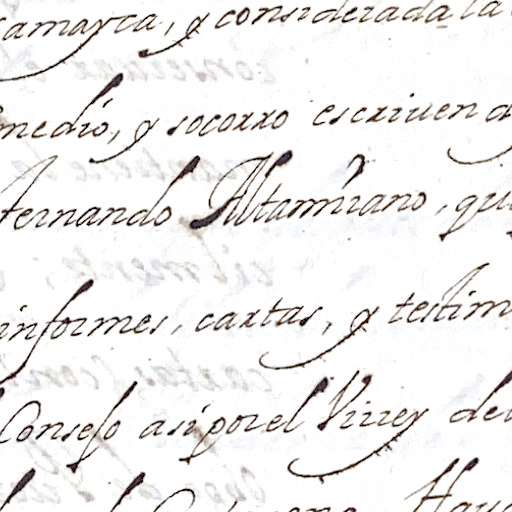 camarca, y considerada la
medio, y socorro escriuen a
fernando Altamirano, qui
informes, cartas, y testim
Consejo asi por el Virrey del